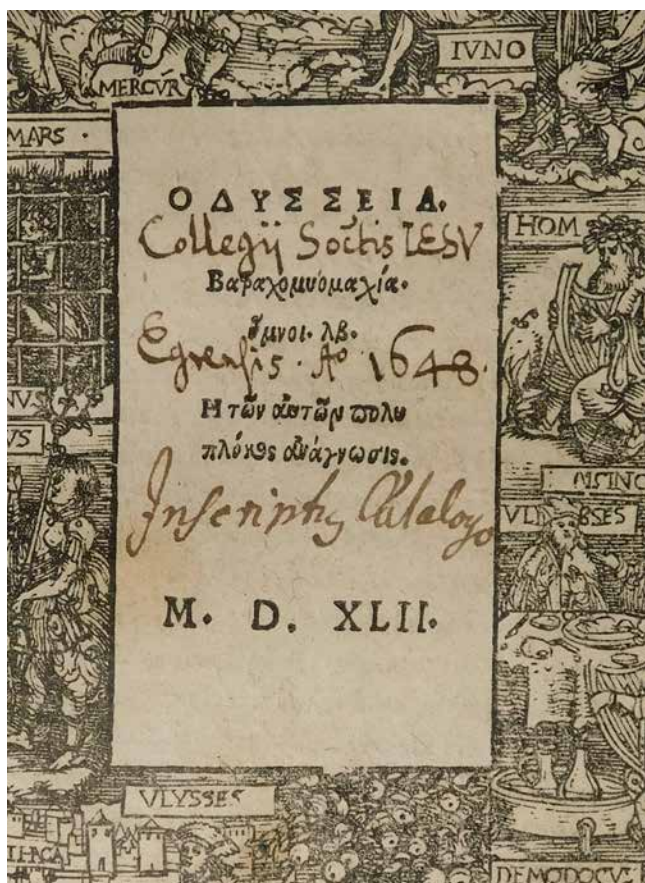 MERCVR
IVNO
MARS
ΟΔΥΣΣΕΙΑ.
Collegij Soctis IESV
Βατραχομυομαχία.
ὕμνοι. λβ.
HOM
Egrensis. Ao 1648.
Η τῶν αὐτῶν πολυ
πλόκος ἀνάγνωσις.
Inscriptus Catalogo
VLYSSES
M. D. XLII.
VLYSSES
ITHACA
DEMODOCVS